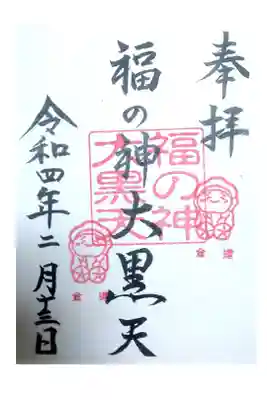 奉拝
福の神大黒天
福の神
大黒天
令和四年二月十三日